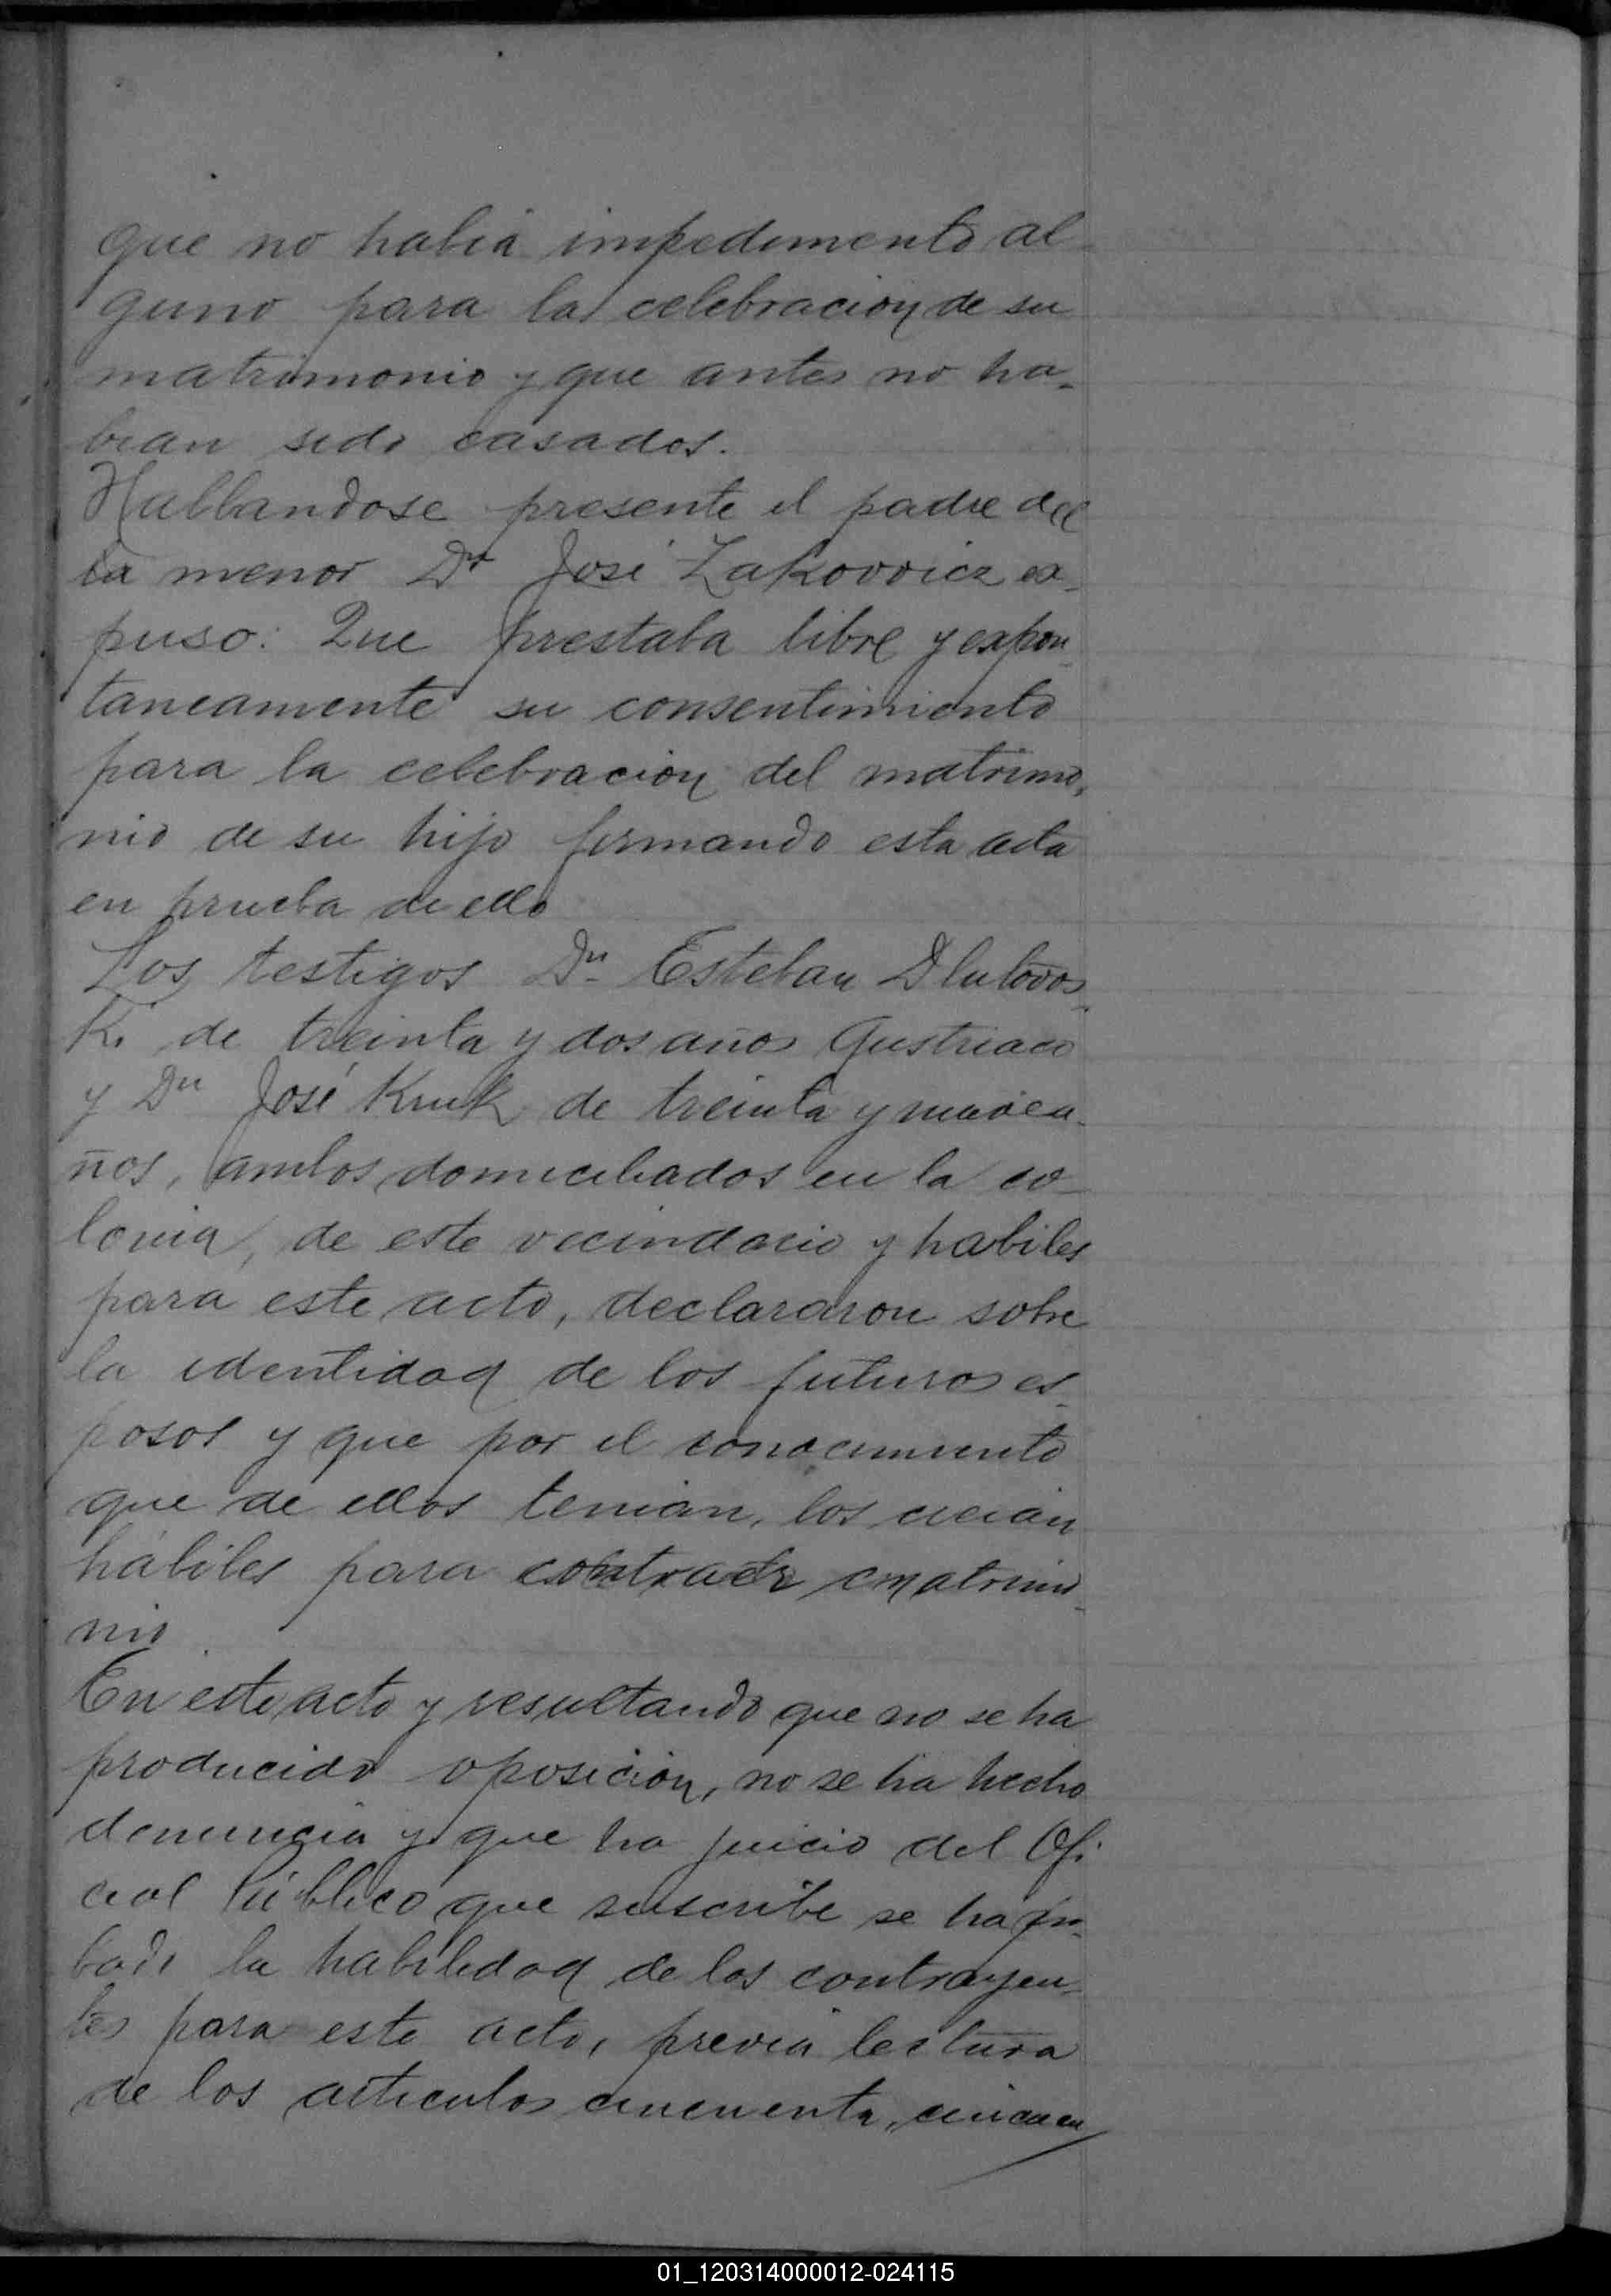 que no habia impedimento al
guno para la celebracion de su
matrimonio y que antes no ha-
bian sido casados.
Hallandose presente el padre del
la menor Dn José Zakovvicz ex-
puso: Que prestaba libre y expon
taneamente su consentimiento
para la celebracion del matrimo-
nio de su hijo firmando esta acta
en prueba de ello
Los testigos Dn Esteban Dlutovos-
Ki de treinta y dos años Austriaco
y Dn José Kruk de treinta y nueve a-
ños, ambos domiciliados en la co-
lonia, de este vecindario y habiles
para este acto, declararon sobre
la identidad de los futuros es-
posos y que por el conocimiento
que de ellos tenian, los creian
hábiles para contraer matrimo-
nio
En este acto y resultando que no se ha
producido oposicion, no se ha hecho
denuncia y que ha juicio del Ofi
cial Público que suscribe se ha pro-
bado la habilidad de los contrayen-
tes para este acto, previa lectura
de los articulos cincuenta, cincuen
01_120314000012-024115